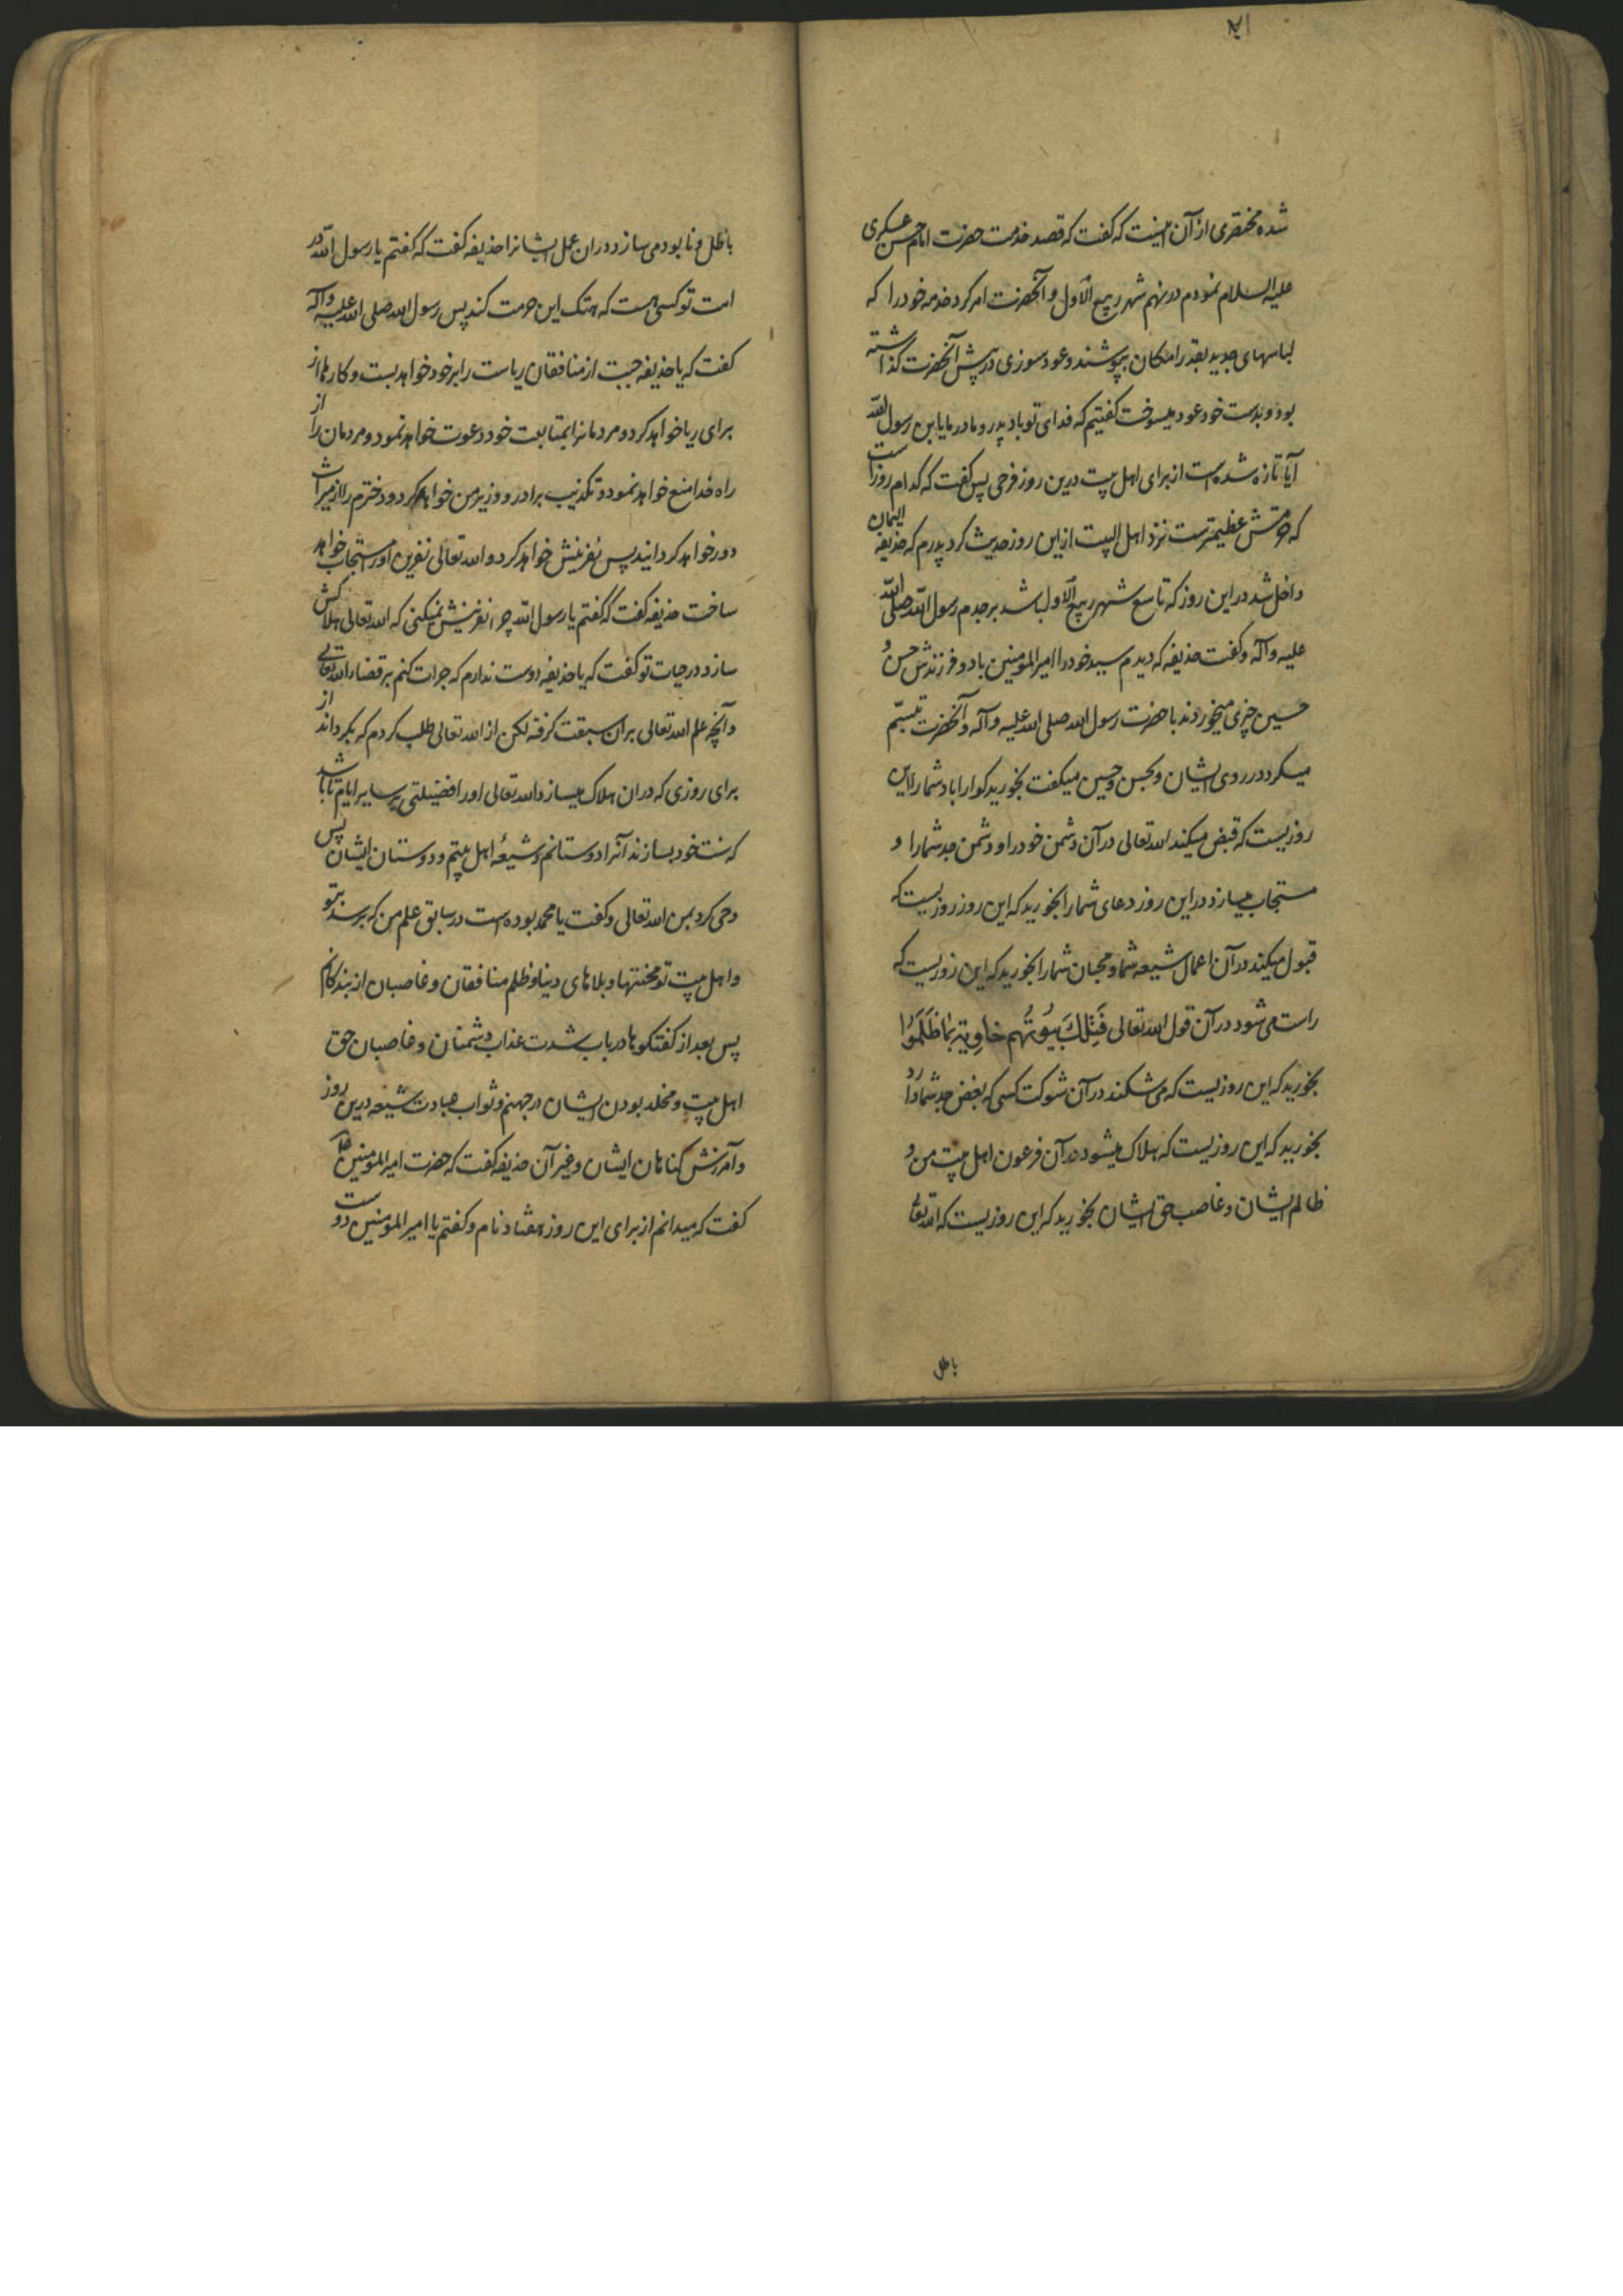 شده مختصری از آن اینست که گفت که قصد خدمت حضرت امام حسن عسکری
علیه السلام نمودم در نهم شهر ربیع الاول و آنحضرت امر کرد خدمه خود را که
لباسهای جدید بقدر امکان بپوشند و عود سوزی در پیش آنحضرت کذاشته
بود و بدست خود عود میسوخت کفتیم که فدای تو باد پدر و مادر ما یابن رسول الله
آیا تازه شده است از برای اهل بیت درین روز فرحی پس کفت که کدام روز است
که حرمتش عظیمترست نزد اهل البیت از این روز حدیث کرد پدرم که حذیفه الیمان
داخل شد در این روز که تاسع شهر ربیع الاول باشد بر جدم رسول الله صلی الله
علیه و آله و کفت حذیفه که دیدم سید خود را امیر المومنین با دو فرزندش حسن و
حسین چیزی میخوردند با حضرت رسول الله صلی الله علیه و آله و آنحضرت تبسّم
میکرد در روی ایشان و بحسن و حسین میکفت بخورید کوارا باد شما را این
روزیست که قبض میکند الله تعالی در آن دشمن خود را و دشمن جد شما را و
مستجاب میسازد در این روز دعای شما را بخورید که این روز روزیست که
قبول میکند در آن اعمال شیعه شما و محبان شما را بخورید که این روزیست که
راست می شود در آن قول الله تعالی فَتِلْكَ بُیُوتُهُم خاوِیة بِمٰا ظَلَمُوا
بخورید که این روزیست که می شکند در آن شوکت کسی که بغض جد شما دارد
بخورید که این روزیست که هلاک میشود در آن فرعون اهل بیت من و
ظالم ایشان و غاصب حق ایشان بخورید که این روزیست که الله تعالی
باطل
باطل و نابود می سازد در ان عمل ایشانرا حذیفه کفت که کفتم یا رسول الله در
امت تو کسی هست که هتک این حرمت کند پس رسول الله صلی الله علیه و آله
کفت که یا حذیفه جبت از منافقان ریاست را بر خود خواهد بست و کارها از
برای ریا خواهد کرد و مردمانرا بمتابعت خود دعوت خواهد نمود و مردمان را از
راه خدا منع خواهد نمود و تکذیب برادر و وزیر من خواهد کرد و دخترم را از میراث
دور خواهد کردانید پس نفرینش خواهد کرد و الله تعالی نفرین او را مستجاب خواهد
ساخت حذیفه کفت که کفتم یا رسول الله چرا نفرینش نمیکنی که الله تعالی هلاکش
سازد در حیات تو کفت که یا حذیفه دوست ندارم که جرات کنم بر قضاء الله تعالی
و آنچه علم الله تعالی بر ان سبقت کرفته لکن از الله تعالی طلب کردم که بکرداند از
برای روزی که در ان هلاک میسازد الله تعالی او را فضیلتی بر سایر ایام تا باشد
که سنت خود بسازند آنرا دوستانم و شیعهٔ اهل بیتم و دوستان ایشان پس
وحی کرد بمن الله تعالی و کفت یا محمد بوده است در سابق علم من که برسد بتو
و اهل بیت تو محنتها و بلاهای دنیا و ظلم منافقان و غاصبان از بندکانم
پس بعد از کفتکوها در باب شدت عذاب دشمنان و غاصبان حق
اهل بیت و مخلد بودن ایشان در جهنم و ثواب عبادت شیعه درین روز
و آمرزش کناهان ایشان و غیر آن حذیفه کفت که حضرت امیر المومنین
کفت که میدانم از برای این روز هفتاد نام و کفتم یا امیر المومنین دوست